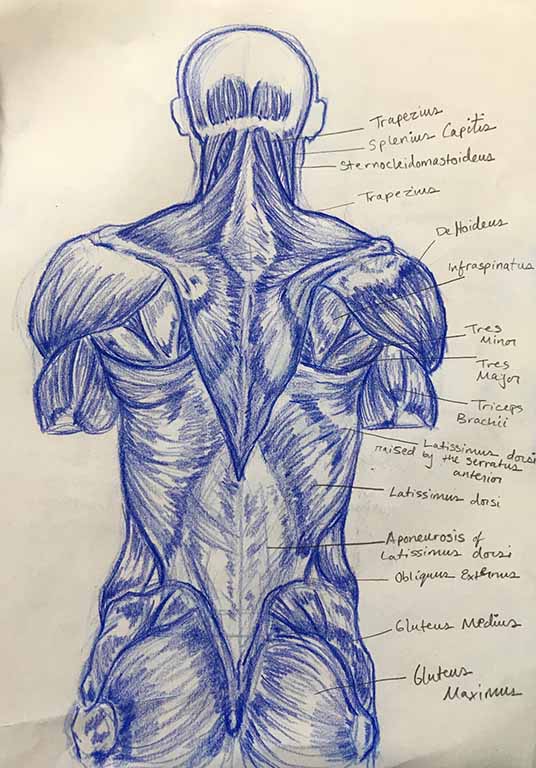 Trapezius
Splenius Capitis
Sternocleidomastoideus
Trapezius
Deltoideus
Infraspinatus
Tres
Minor
Tres
Major
Triceps
Brachii
Latissimus dorsi
raised by the serratus
anterior
Latissimus dorsi
Aponeurosis of
Latissimus dorsi
Obliquus Externus
Gluteus Medius
Gluteus
Maximus